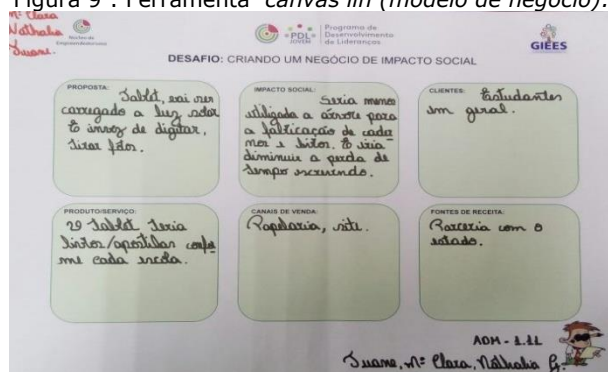 Figura 9 . Ferramenta canvas lin (modelo de negócio).
Mª Clara
Nathalia
Suane.
Núcleo de
Empreendedorismo
PDL
JOVEM
Programa de
Desenvolvimento
de Lideranças
GIEES
DESAFIO: CRIANDO UM NEGÓCIO DE IMPACTO SOCIAL
PROPOSTA:
Tablet, vai ser
carregado a luz solar
E invez de digitar,
tirar fotos.
IMPACTO SOCIAL:
Seria menos
utiligada a árvore para
a fabricação de cader
nos e livros. E iria
diminuir a perda de
tempo escrevendo.
CLIENTES:
Estudantes
em geral.
PRODUTO/SERVIÇO:
tablet teria
livros/apostilas confor
me cada escola.
CANAIS DE VENDA:
Papelaria, site.
FONTES DE RECEITA:
Parceria com o
estado.
ADM - 1.11
Suane, Mª Clara, Nathalia G.